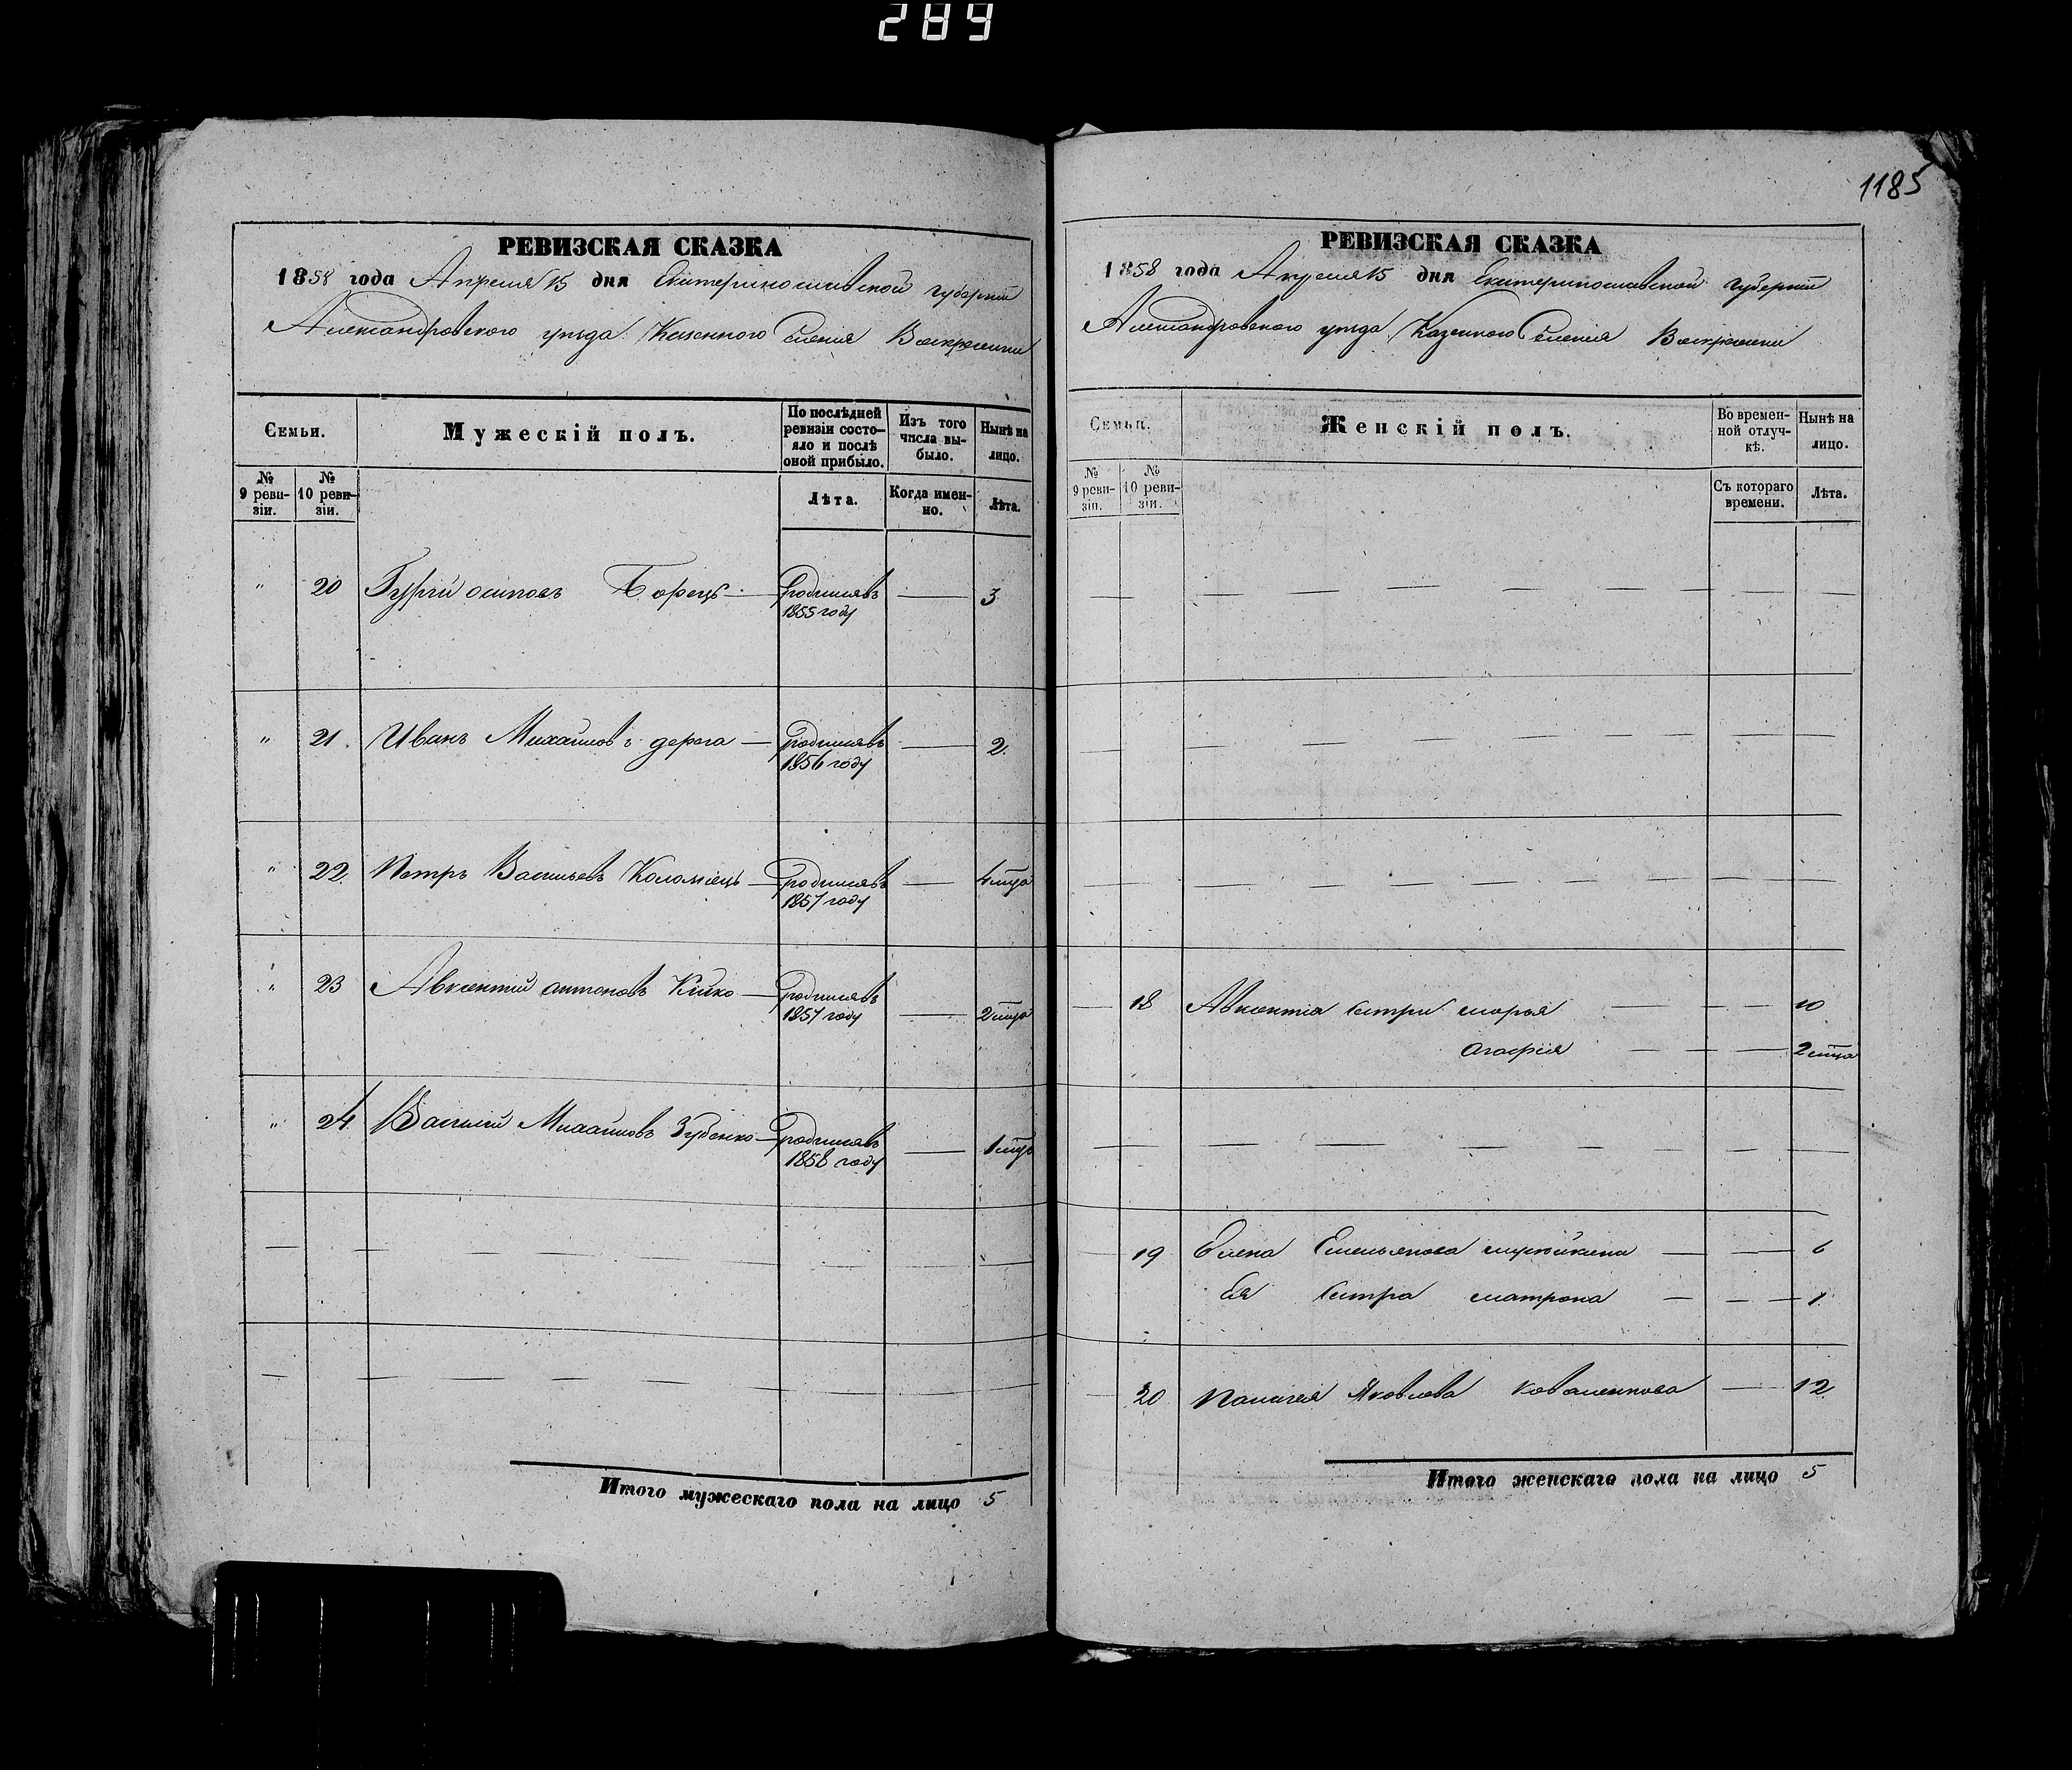 289
1185
РЕВИЗСКАЯ СКАЗКА
1858 года Апреля 15 дня Екатеринославской губернии
Александровского уезда Казенного Селения
Семьи.
Мужескій полъ.
По послѣдней ревизіи состо-
яло и послѣ
оной прибыло.
Изъ того
числа вы-
было.
Нынѣ на
лицо.
№ 9 реви-
зіи.
№ 10 реви-
зіи.
Лѣта.
Когда имен-
но.
Лѣта.
" 20 Гурій осиповъ Борецъ — родился въ — 3
1855 году
" 21. Иванъ Михайловъ дерега — родился въ — 2.
1856 году
" 22. Петръ Васильевъ Коломіецъ — родился въ — 4 мца
1857 году
" 23 Авксентій антоновъ Кійко — родился въ — 2 мца
1857 году
" 24. Василій Михайловъ Зубенко — родился въ — 1 мцъ
1858 году
Итого мужескаго пола на лицо 5
РЕВИЗСКАЯ СКАЗКА
1858 года Апреля 15 дня Екатеринославской губернии
Александровского уезда Казенного Селения
Семьи.
Женскій полъ.
Во времен-
ной отлуч-
кѣ.
Нынѣ на
лицо.
№ 9 реви-
зіи.
№ 10 реви-
зіи.
Съ котораго
времени.
Лѣта.
— 18 Авксентіа сестри марья — — — 10
агафія — — — 2 мца
19 Олена Емельянова — — 6
Ея сестра матрона — — — 1
20 Палагея Яковлева Коваленкова — 12
Итого женскаго пола на лицо 5